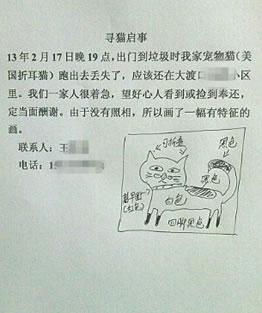 寻猫启事
13 年 2 月 17 日晚 19 点，出门到垃圾时我家宠物猫（美
国折耳猫）跑出去丢失了，应该还在大渡口 小区
里。我们一家人很着急，望好心人看到或捡到奉还，
定当面酬谢。由于没有照相，所以画了一幅有特征的
画。
联系人：王
电话：1
可折叠
黑色
黑色
白色
四脚黑色